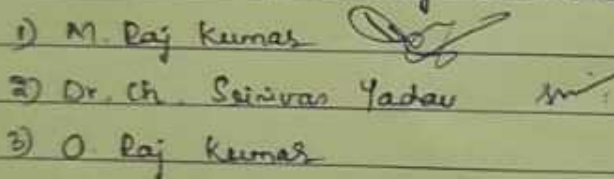 1) M. Raj Kumar
2) Dr. Ch. Srinivas Yadav
3) O. Raj Kumar